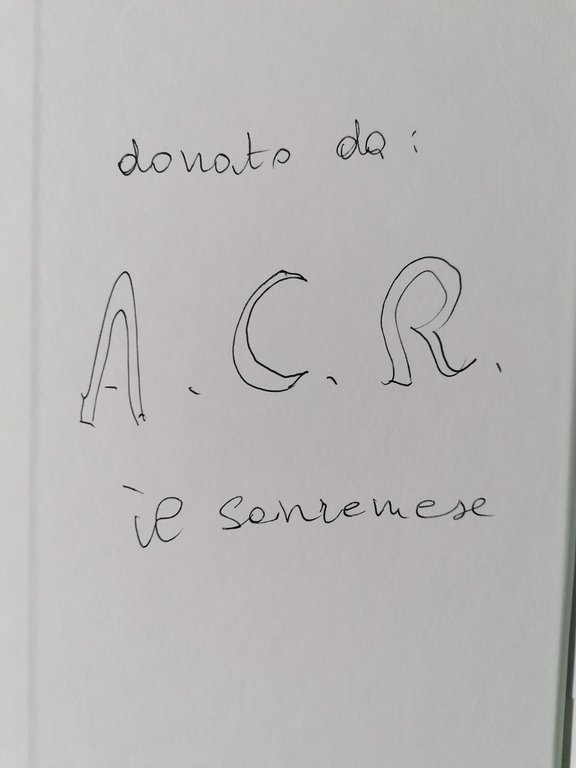 donato da:
A.C.R.
il sanremese